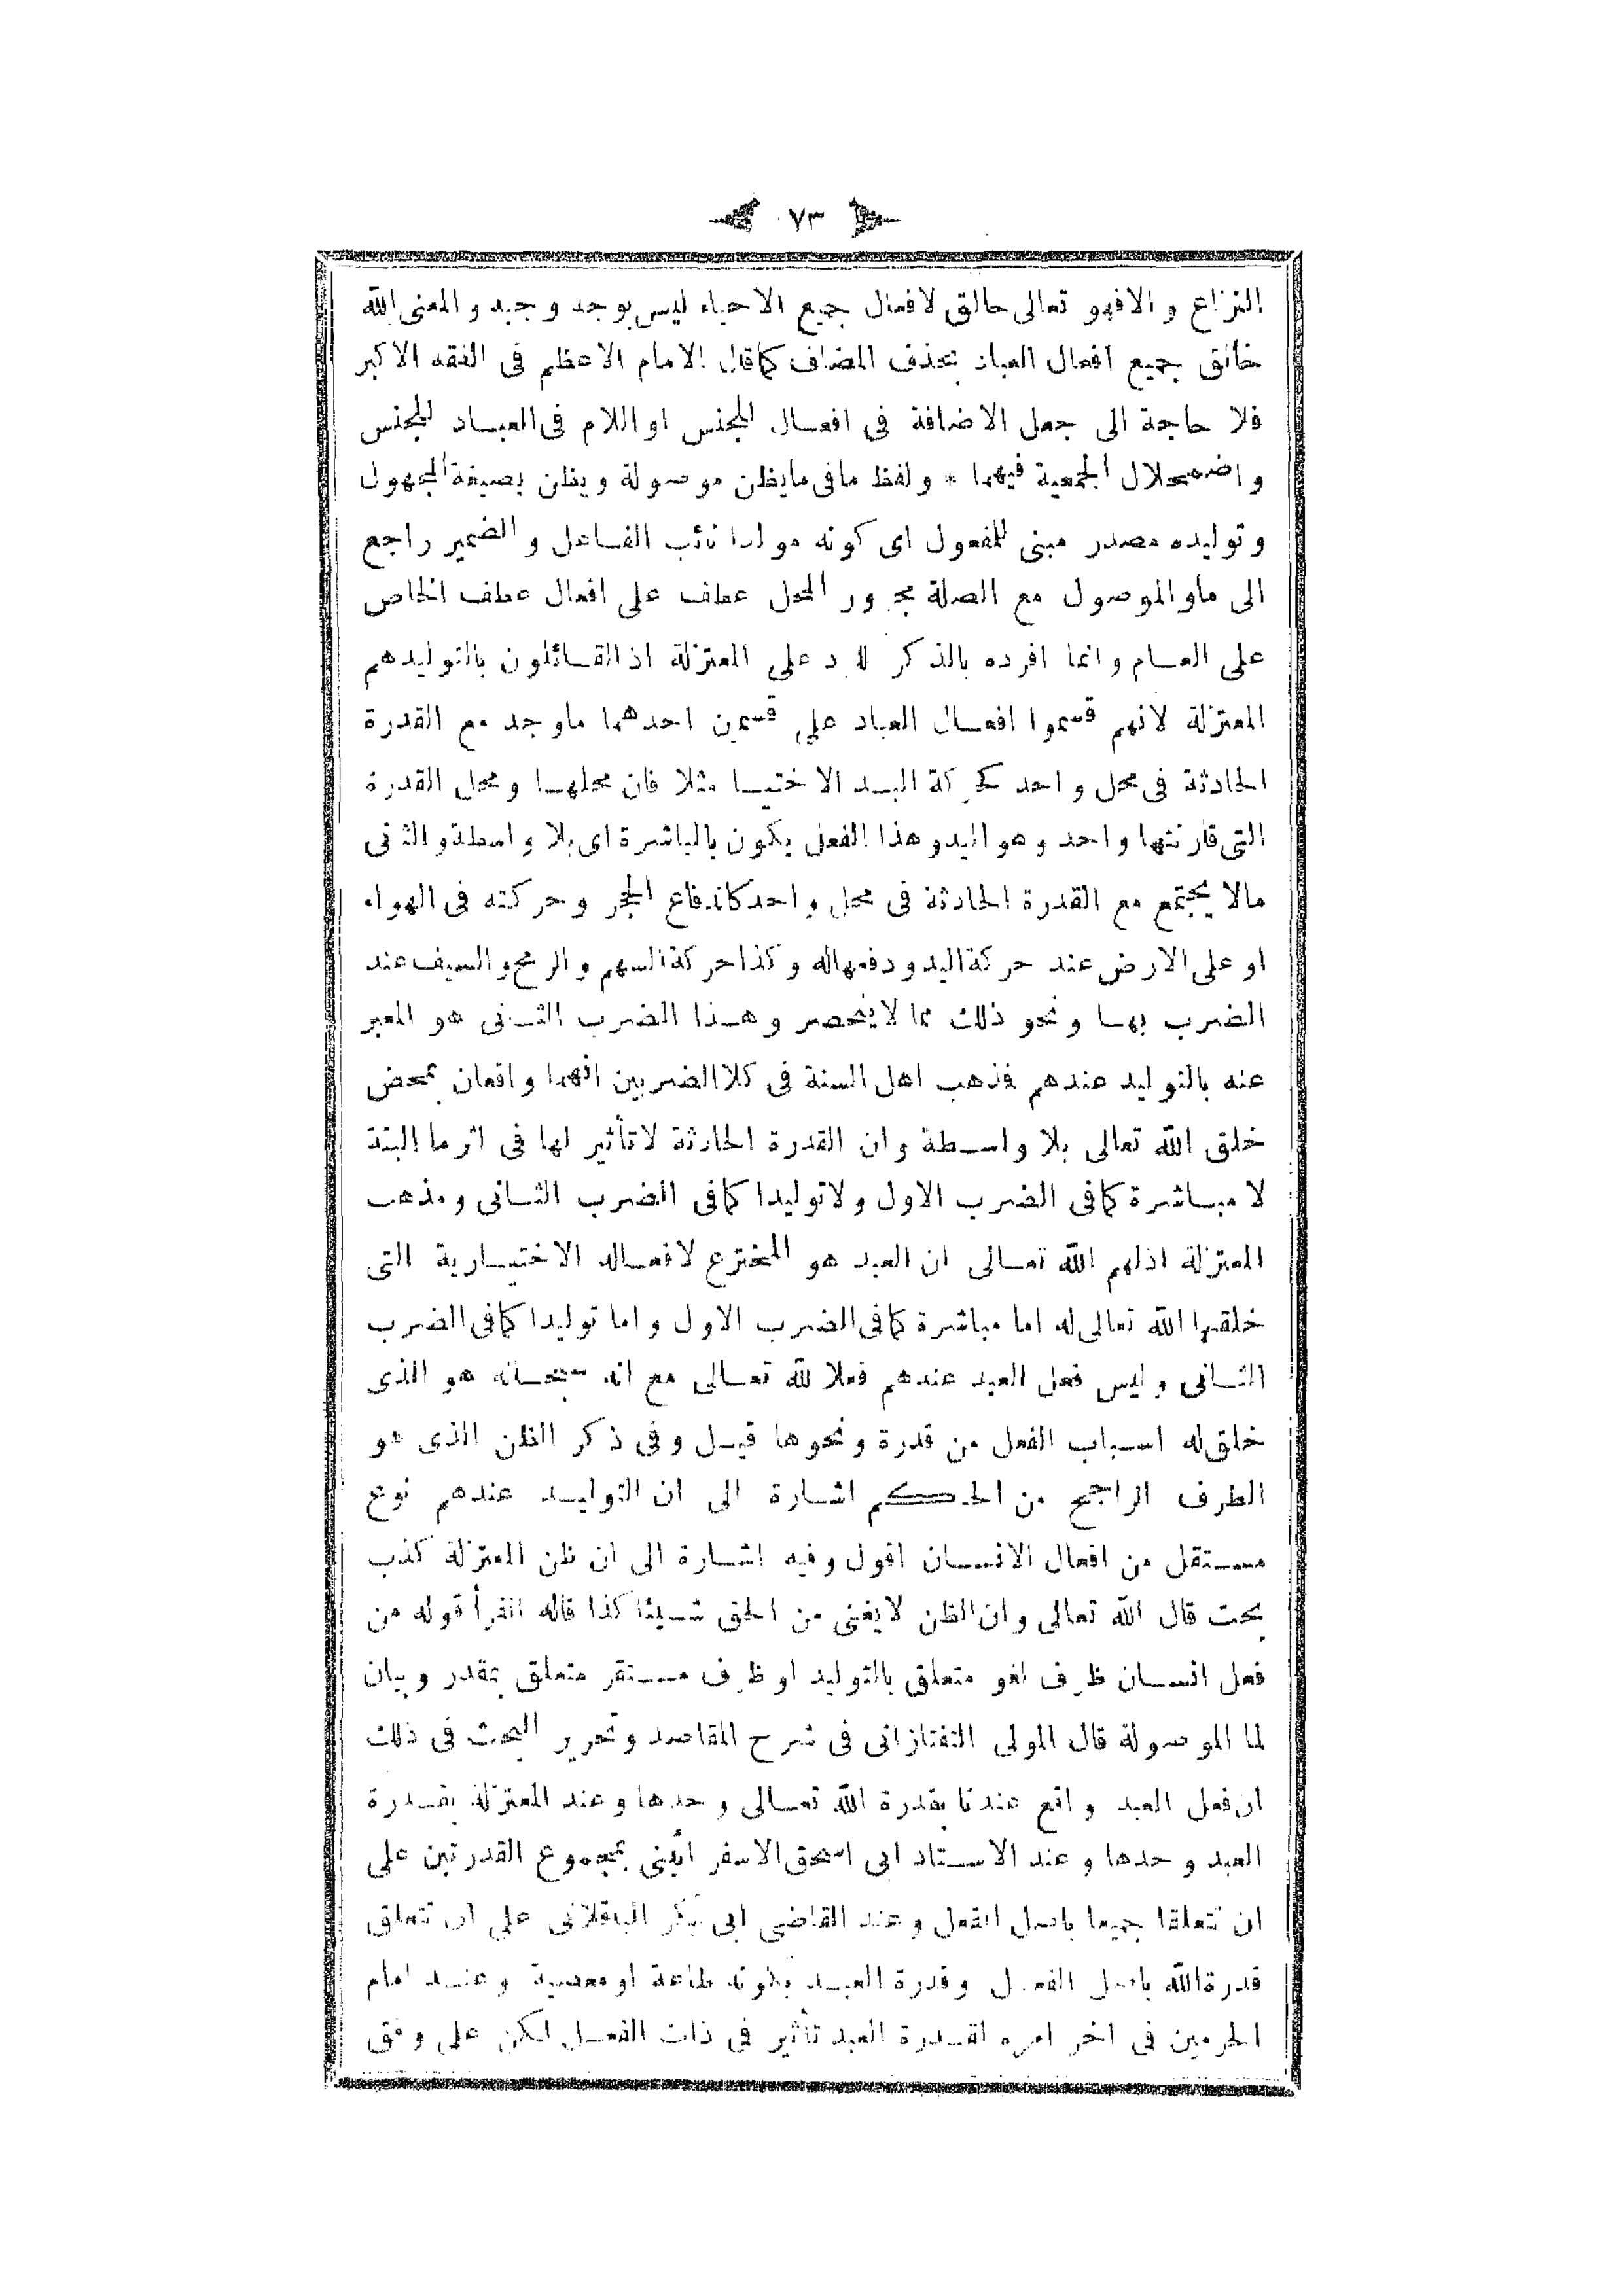 ٧٣
النزاع والافهو تعالى خالق لافعال جميع الاحياء ليس بوجد وجيد والمعنى الله
خالق بجميع افعال العباد بحذف المضاف كماقال الامام الاعظم فى الفقه الاكبر
فلا حاجة الى جعل الاضافة فى افعال للجنس او اللام فى العباد للجنس
واضمحلال الجمعية فيهما * ولفظ مافى مايظن موصولة ويظن بصيغة المجهول
وتوليده مصدر مبنى للمفعول اى كونه مولدا نائب الفاعل والضمير راجع
الى ماو الموصول مع الصلة مجرور المحل عطف على افعال عطف الخاص
على العام وانما افرده بالذكر للرد على المعتزلة اذ القائلون بالتوليدهم
المعتزلة لانهم قسموا افعال العباد على قسمين احدهما ماوجد مع القدرة
الحادثة فى محل واحد كحركة اليد الاختيا مثلا فان محلها ومحل القدرة
التى قارنتها واحد وهو اليد وهذا الفعل يكون بالمباشرة اى بلا واسطة والثانى
مالا يجتمع مع القدرة الحادثة فى محل واحد كاندفاع الحجر وحركته فى الهواء
او على الارض عند حركة اليد ودفعهاله وكذا حركة السهم والرمح والسيف عند
الضرب بها ونحو ذلك مما لاينحصر وهذا الضرب الثانى هو المعبر
عنه بالتوليد عندهم فذهب اهل السنة فى كلا الضربين انهما واقعان بمحض
خلق الله تعالى بلا واسطة وان القدرة الحادثة لاتأثير لها فى اثر ما البتة
لا مباشرة كمافى الضرب الاول ولاتوليدا كمافى الضرب الثانى ومذهب
المعتزلة اذلهم الله تعالى ان العبد هو المخترع لافعاله الاختيارية التى
خلقها الله تعالى له اما مباشرة كمافى الضرب الاول واما توليدا كمافى الضرب
الثانى وليس فعل العبد عندهم فعلا لله تعالى مع انه سبحانه هو الذى
خلق له اسباب الفعل من قدرة ونحوها قيل وفى ذكر الظن الذى هو
الطرف الراجح من الحكم اشارة الى ان التوليد عندهم نوع
مستقل من افعال الانسان اقول وفيه اشارة الى ان ظن المعتزلة كذب
بحت قال الله تعالى وان الظن لايغنى من الحق شيئا كذا قاله الفرأ قوله من
فعل انسان ظرف لغو متعلق بالتوليد او ظرف مستقر متعلق بمقدر وبيان
لما الموصولة قال المولى التفتازانى فى شرح المقاصد وتحرير البحث فى ذلك
ان فعل العبد واقع عندنا بقدرة الله تعالى وحدها وعند المعتزلة بقدرة
العبد وحدها وعند الاستاد ابى اسحق الاسفرائينى بمجموع القدرتين على
ان تتعلقا جميعا باصل الفعل وعند القاضى ابى بكر الباقلانى على ان تتعلق
قدرة الله باصل الفعل وقدرة العبد بكونه طاعة او معصية وعند امام
الحرمين فى اخر امره لقدرة العبد تأثير فى ذات الفعل لكن على وفق